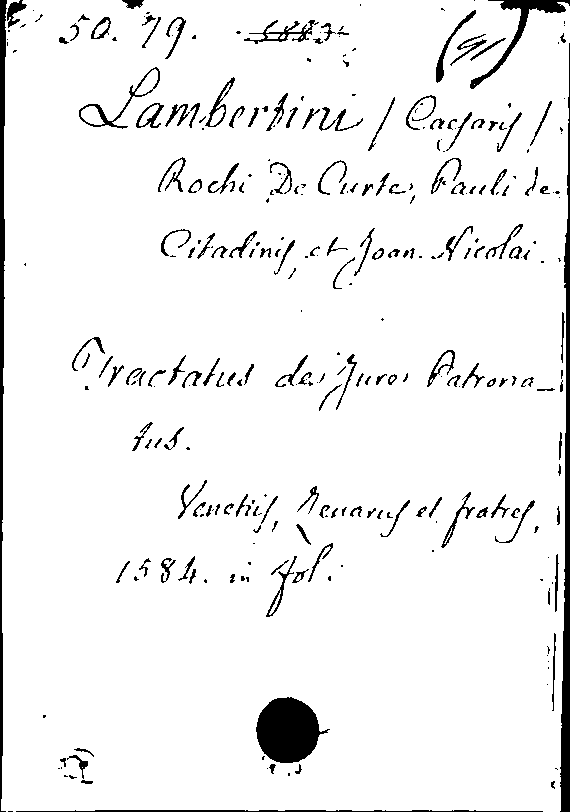 50. 79. 5883
Lambertini / Caesaris /
Rochi De Curte, Pauli de
Citadinis, et Joan. Nicolai.
Tractatus de Jure Patrona-
tus.
Venetiis, et fratres,
1584. in fol.